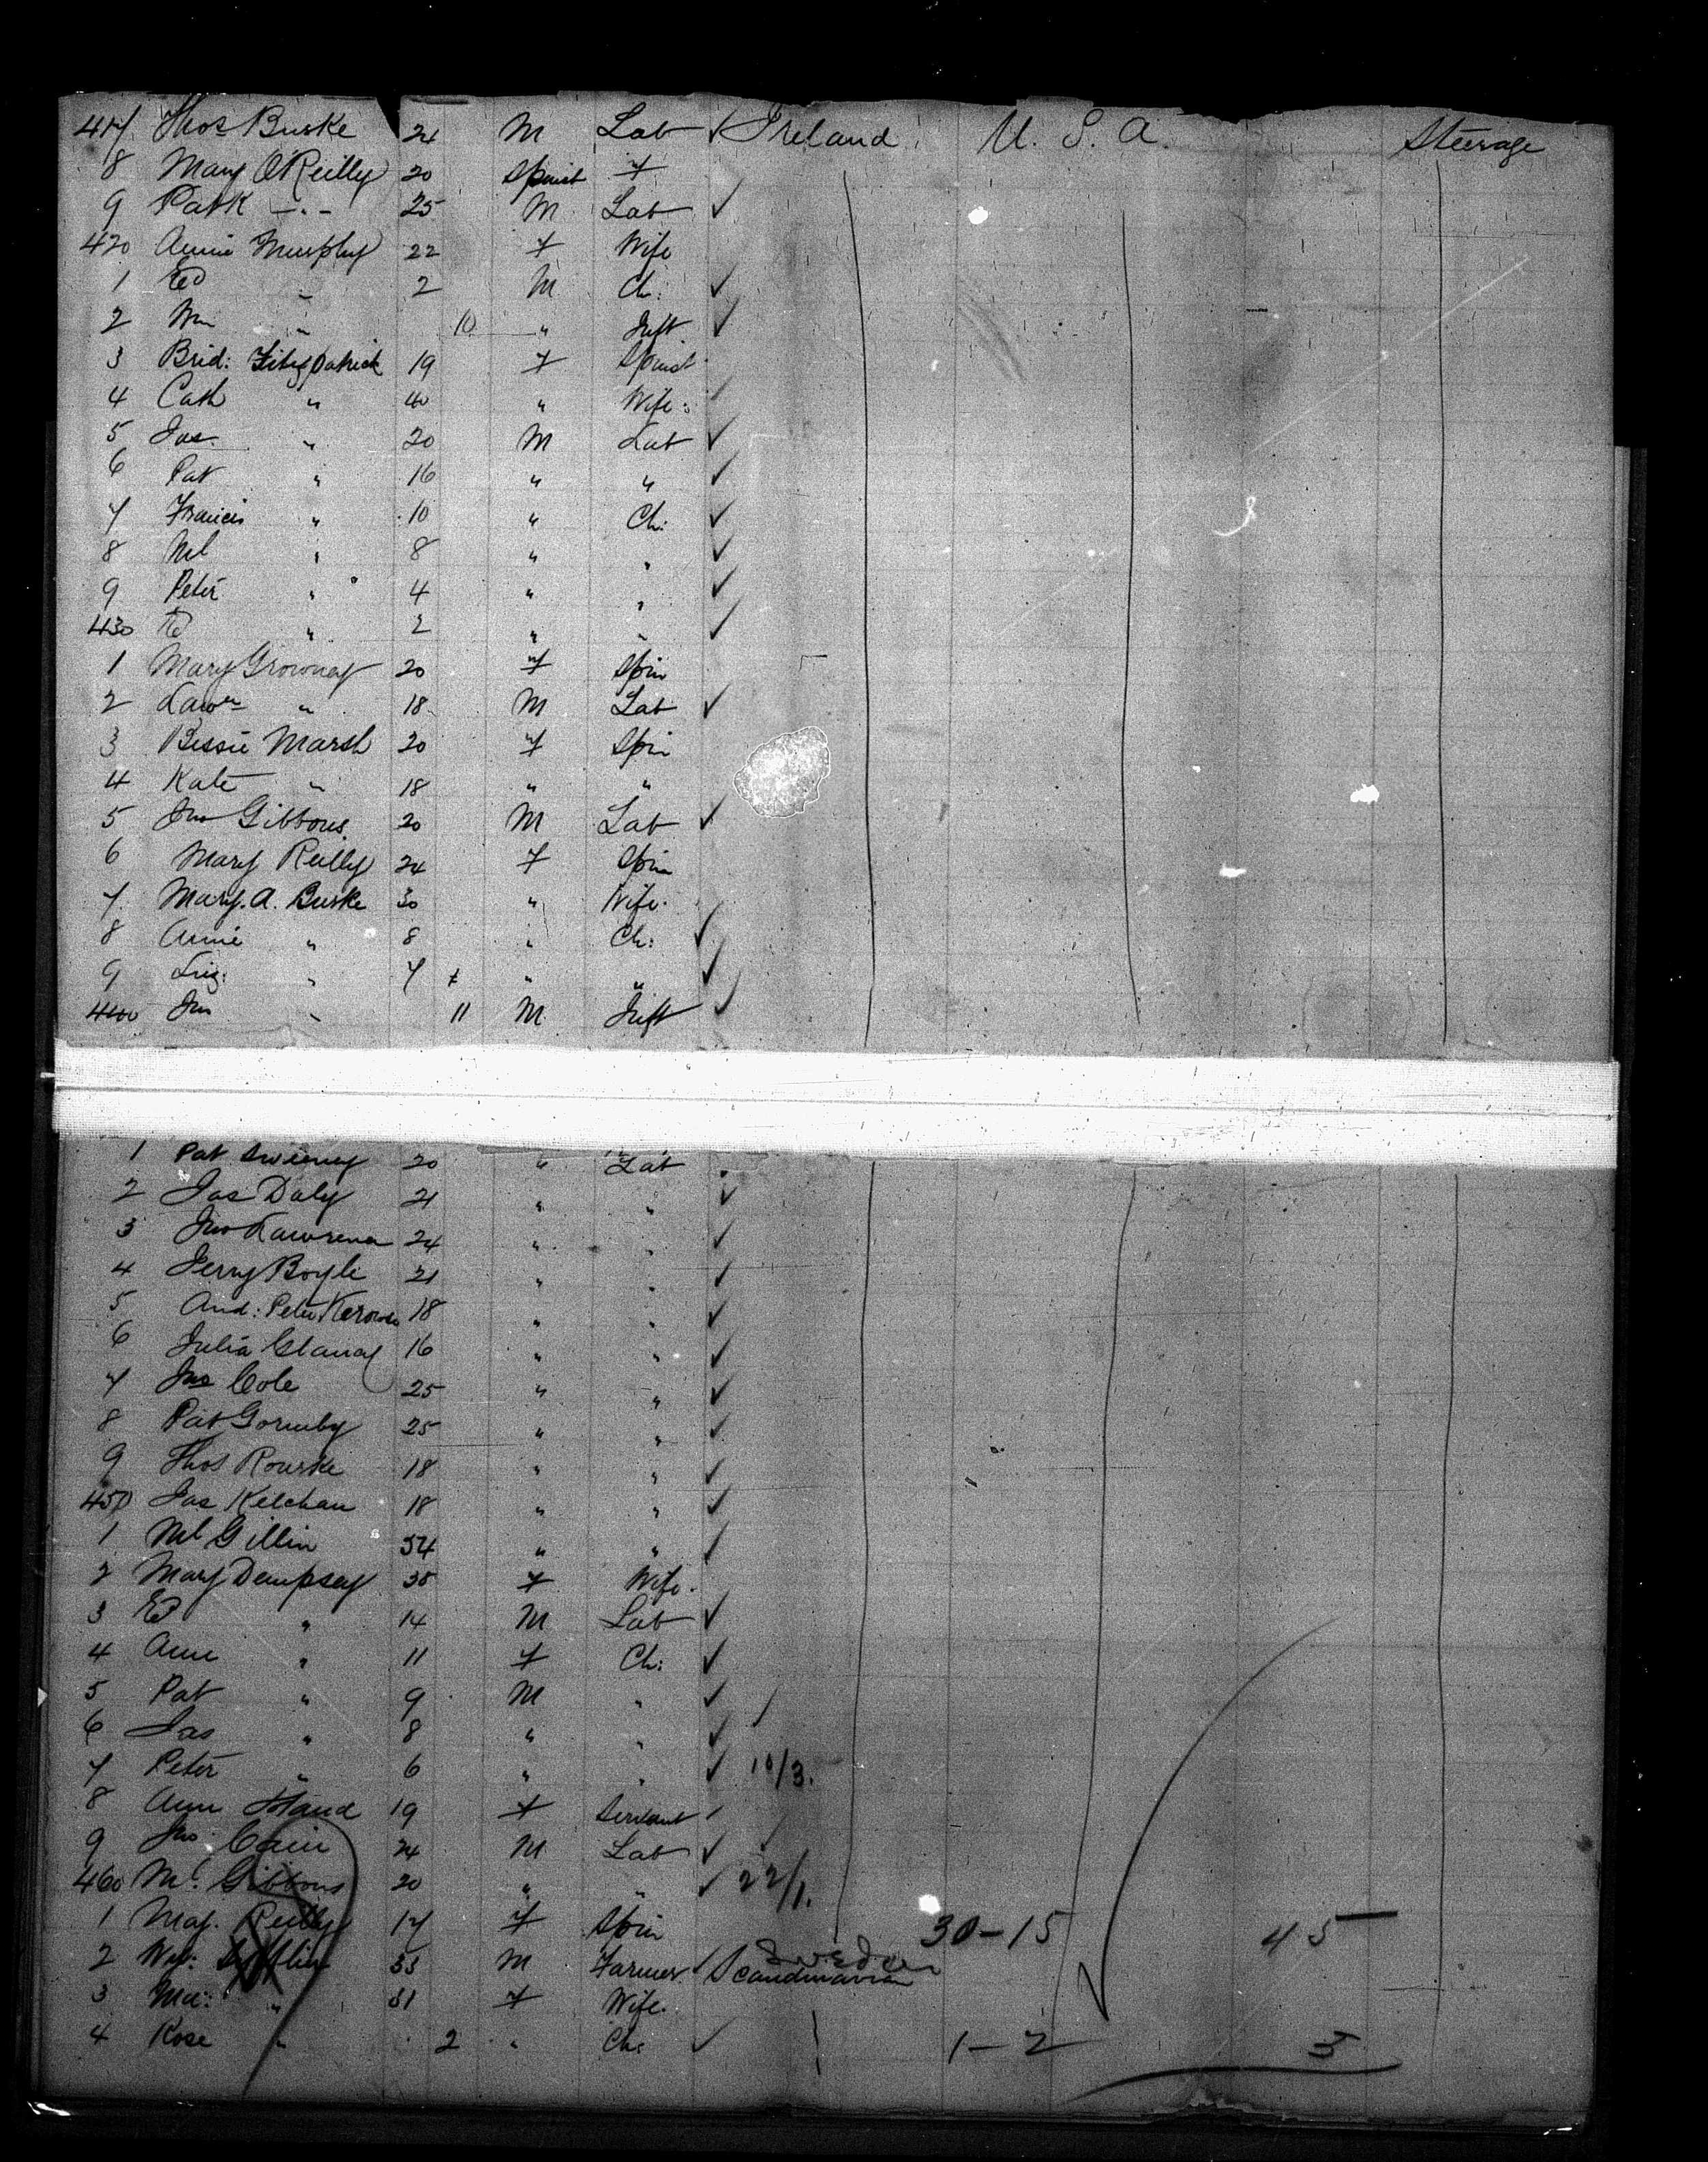 417 Thos Burke 24 M Lab ✓ Ireland U. S. A. Steerage
8 Mary O'Reilly 20 Spinst f
9 Patk " 25 M Lab ✓
420 Annie Murphy 22 f Wife
1 Ed " 2 M Ch: ✓
2 Wm " 10 " Inft ✓
3 Brid: Fitzpatrick 19 f Spinst
4 Cath " 40 " Wife:
5 Jas " 20 M Lab ✓
6 Pat " 16 " " ✓
7 Francis " 10 " Ch: ✓
8 Ml " 8 " " ✓
9 Peter " 4 " " ✓
430 Ed " 2 " " ✓
1 Mary Growney 20 f Spin
2 Lawce " 18 M Lab ✓
3 Bessie Marsh 20 f Spin
4 Kate " 18 " "
5 Jno Gibbons 20 M Lab ✓
6 Mary Reilly 24 f Spin
7 Mary. A. Burke 30 " Wife.
8 Annie " 8 " Ch: ✓
9 Liz: " 7 " " ✓
440 Jno " 11 M Inft ✓
1 Pat Sweeney 20 " Lab
2 Jas Daly 21 " " ✓
3 Jno Lawrence 24 " " ✓
4 Jerry Boyle 21 " " ✓
5 And: Peter 18 " " ✓
6 Julia 16 " " ✓
7 Jno Cole 25 " " ✓
8 Pat Gormby 25 " " ✓
9 Thos Rourke 18 " " ✓
450 Jas Kelehan 18 " " ✓
1 Ml Gillin 34 " " ✓
2 Mary Dempsey 38 f Wife.
3 Ed " 14 M Lab ✓
4 Anne " 11 f Ch: ✓
5 Pat " 9 M " ✓
6 Jas " 8 " " ✓
7 Peter " 6 " " ✓ 10/3.
8 Ann 19 f Servant
9 Jno Cain 24 M Lab ✓
460 Ml. Gibbons 20 " " ✓ 22/1.
1 May. Reilly 17 f Spin 30-15 45
2 Wm: 33 M Farmer ✓ Scandinavian Sweden
3 Ma: " 31 f Wife.
4 Rose " 2 " Ch: ✓ 1-2 3